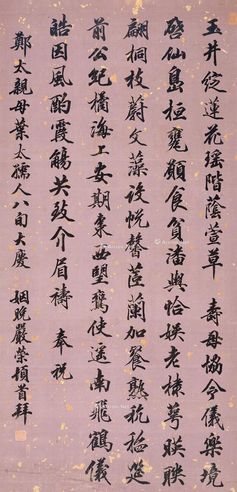 玉井綻蓮花瑤階蔭萱草 壽母協令儀樂境
啓仙島桓甕願食貧潘輿恰娛老棣萼映聯
翩桐枝蔚文藻設帨馨茝蘭加餐熟秔稻筵
前公紀橘海上安期棗西望使遙南飛鶴儀
皓因風酌霞觴共致介眉禱 奉祝
鄭太親母葉太孺人八旬大慶 姻晚嚴榮頓首拜